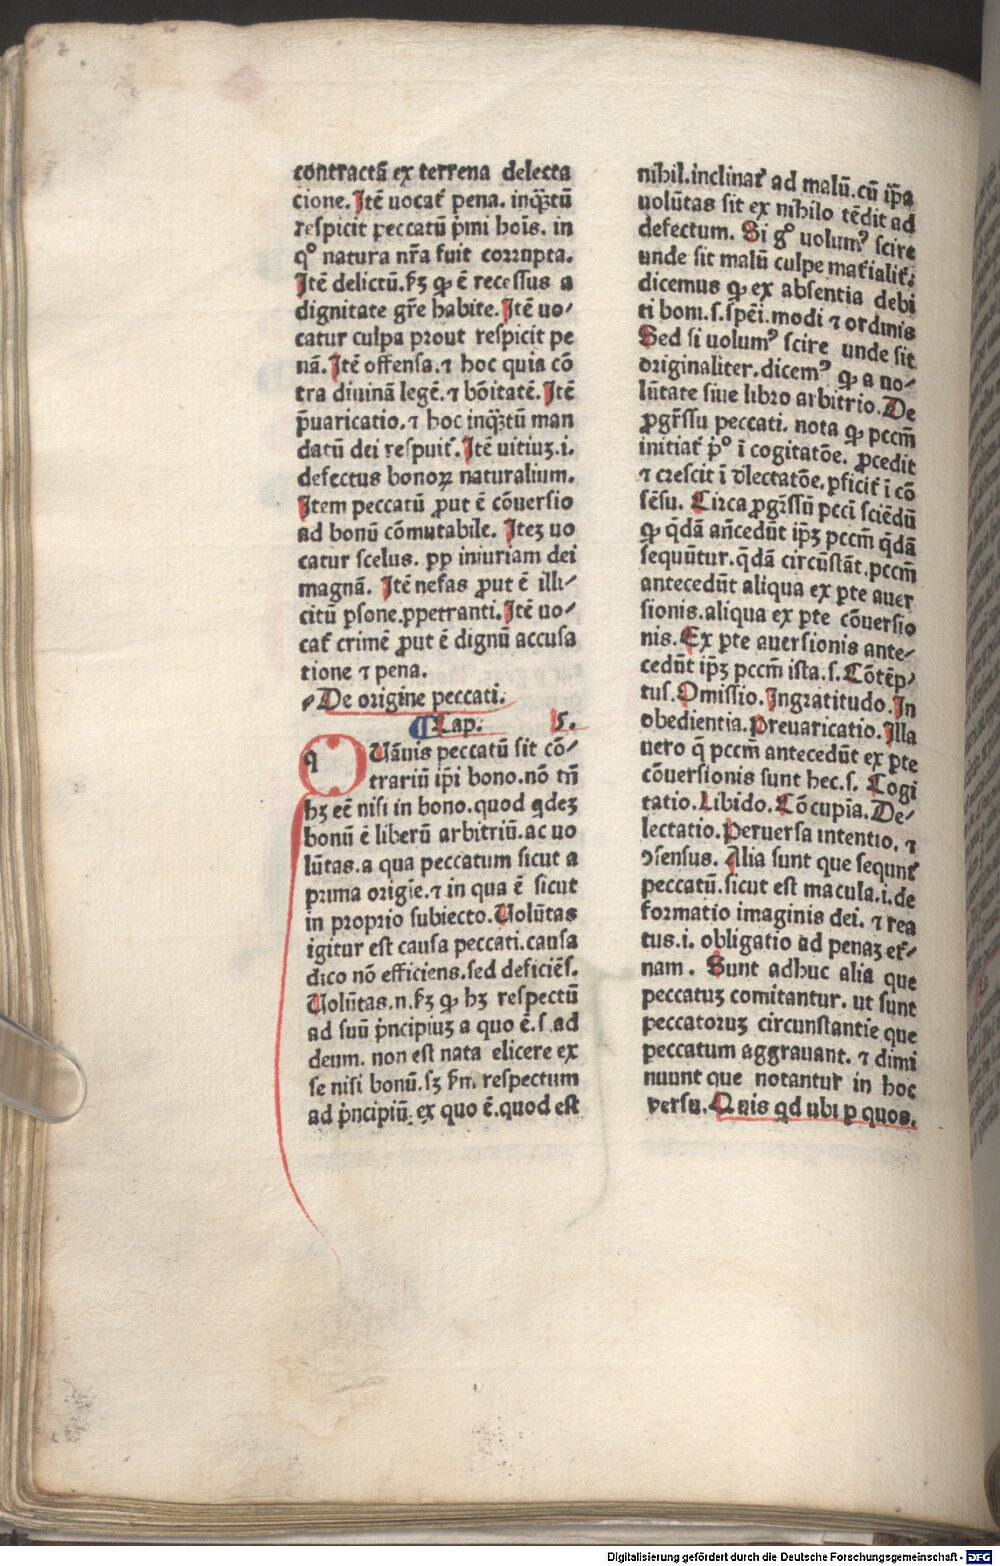 contractā ex terrena delecta
cione. Itē uocat᷑ pena. inqꝫtū
respicit peccatū p̄mi hoīs. in
qº natura nr̄a fuit corrupta.
Itē delictū. ẜꝫ ꝙ ē recessus a
dignitate gr̄e habite. Itē uo⸗
catur culpa prout respicit pe
nā. Itē offensa. ⁊ hoc quia cō
tra diuinā legē. ⁊ bōitatē. Itē
p̄uaricatio. ⁊ hoc inqꝫtū man
datū dei respuit᷑. Itē uitiuꝫ .i.
defectus bonoꝝ naturalium.
Item peccatū ꝓut ē cōuersio
ad bonū cōmutabile. Iteꝫ uo
catur scelus. ꝓp iniuriam dei
magnā. Itē nefas ꝓut ē illi⸗
citū ꝑsone ꝑpetranti. Itē uo⸗
cat᷑ crimē ꝓut ē dignū accusa
tione ⁊ pena.
De origine peccati.
Cap. 5.
QUāuis peccatū sit cō⸗
trariū ip̄i bono. nō tn̄
hꝫ eē nisi in bono. quod qdeꝫ
bonū ē liberū arbitriū. ac uo
lūtas. a qua peccatum sicut a
prima origīe. ⁊ in qua ē sicut
in proprio subiecto. Uolūtas
igitur est causa peccati. causa
dico nō efficiens. sed deficiēs.
Uolūtas .n. ẜꝫ ꝙ hꝫ respectū
ad suū p̄ncipiuꝫ a quo ē .s. ad
deum. non est nata elicere ex
se nisi bonū. sꝫ ẜm respectum
ad p̄ncipiū. ex quo ē. quod est
nihil. inclinat᷑ ad malū. cū ip̄a
uolūtas sit ex nihilo tēdit ad
defectum. Si gº uolumꝰ scire
unde sit malū culpe mat᷑ialit᷑.
dicemus ꝙ ex absentia debi
ti boni .s. spēi. modi ⁊ ordinis
Sed si uolumꝰ scire unde sit
originaliter. dicemꝰ ꝙ a uo⸗
lūtate siue libro arbitrio. De
ꝓgr̄ssu peccati. nota ꝙ pccm̄
initiat᷑ pº ī cogitatōe. ꝓcedit
⁊ crescit ī dlectatōe. ꝑficit᷑ ī cō
sēsu. Circa ꝓgr̄ssū pcci sciēdū
ꝙ qdā an̄cedūt ipꝫ pccm̄ qdā
sequūtur. qdā circūstāt. pccm̄
antecedūt aliqua ex ꝑte auer
sionis. aliqua ex ꝑte cōuersio
nis. Ex ꝑte auersionis ante⸗
cedūt ipꝫ pccm̄ ista .s. Cōtēp⸗
tus. Omissio. Ingratitudo. In
obedientia. Preuaricatio. Illa
uero q̄ pccm̄ antecedūt ex ꝑte
cōuersionis sunt hec .s. Cogi
tatio. Libido. Cōcupīa. De⸗
lectatio. Peruersa intentio. ⁊
ↄsensus. Alia sunt que sequnt᷑
peccatū. sicut est macula .i. de
formatio imaginis dei. ⁊ rea
tus .i. obligatio ad penaꝫ et᷑⸗
nam. Sunt adhuc alia que
peccatuꝫ comitantur. ut sunt
peccatoruꝫ circunstantie que
peccatum aggrauant. ⁊ dimi
nuunt que notantur in hoc
versu. Quis qd ubi ꝑ quos.
Digitalisierung gefördert durch die Deutsche Forschungsgemeinschaft - DFG